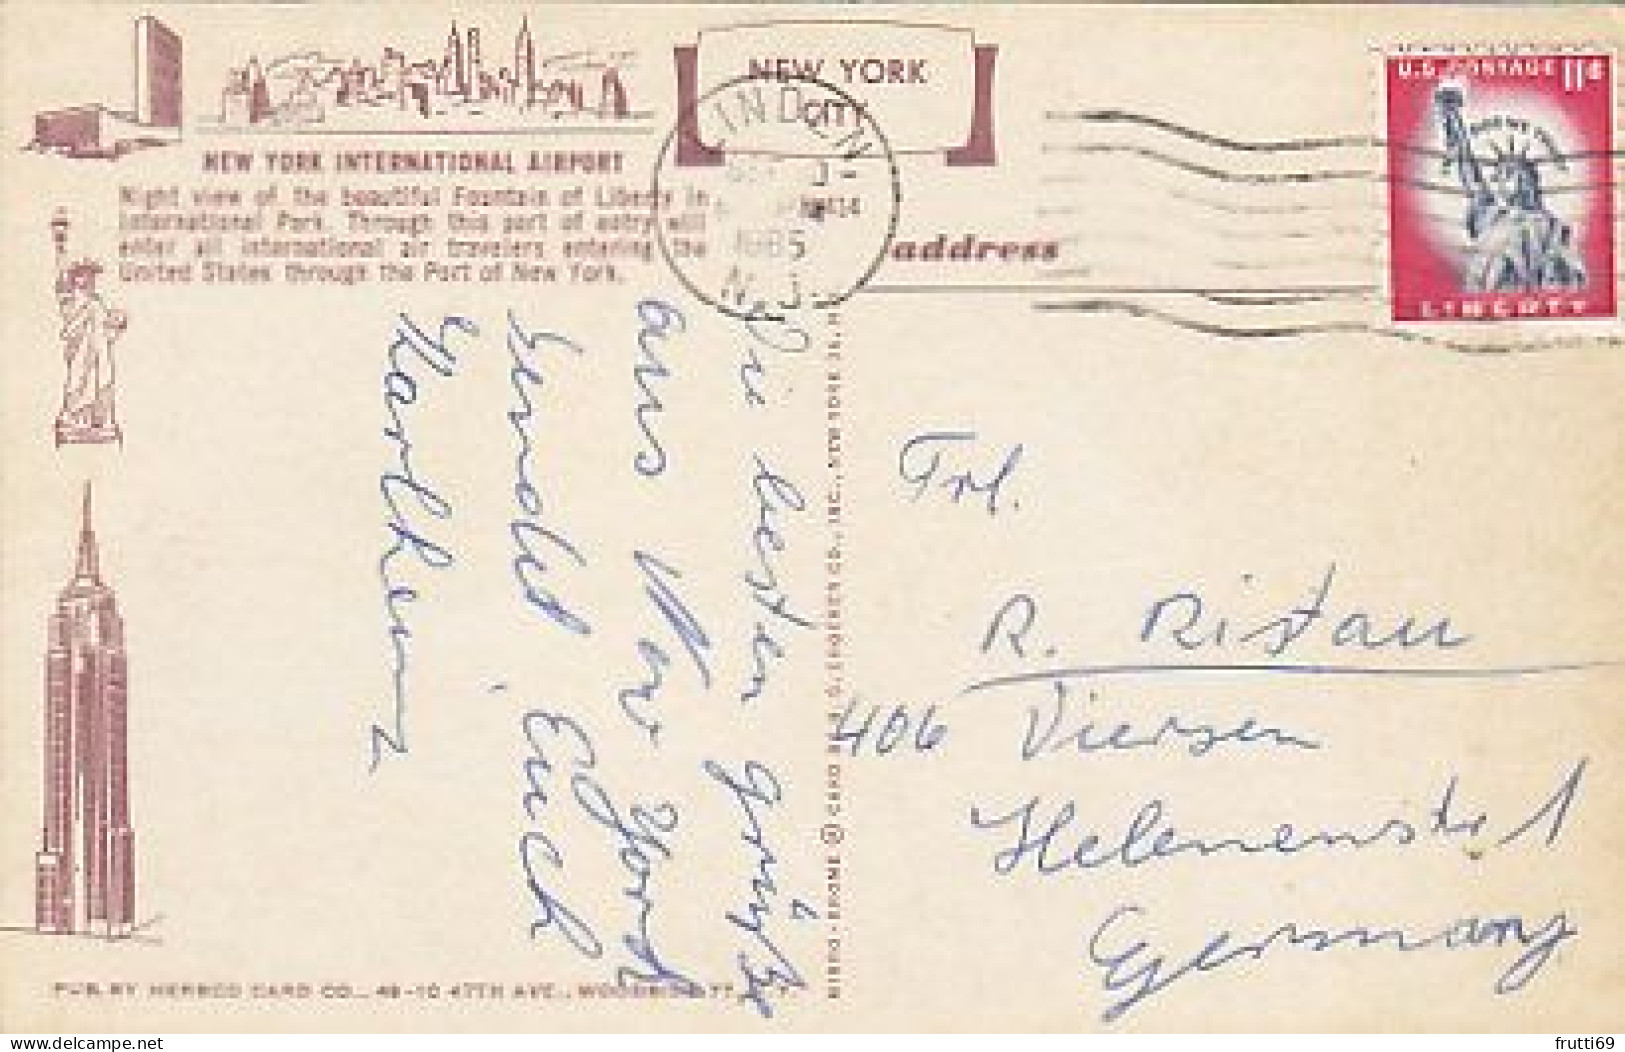 NEW YORK
CITY
NEW YORK INTERNATIONAL AIRPORT
Night view of the beautiful Fountain of Liberty in
International Park. Through this part of entry will
enter all international air travelers entering the
United States through the Port of New York.
LINDEN
1965
N.J.
address
U.S. POSTAGE 11¢
IN GOD WE TRUST
LIBERTY
Die besten Grüße
aus New York
sendet Euch
Karlheinz
Frl.
R. Ristau
406 Viersen
Helenenstr. 1
Germany
PUB. BY HERBCO CARD CO., 49-10 47TH AVE., WOODSIDE 77,
MIRRO-KROME ® CARD BY H.S. CROCKER CO., INC., NEW YORK 36, N.
frutti69